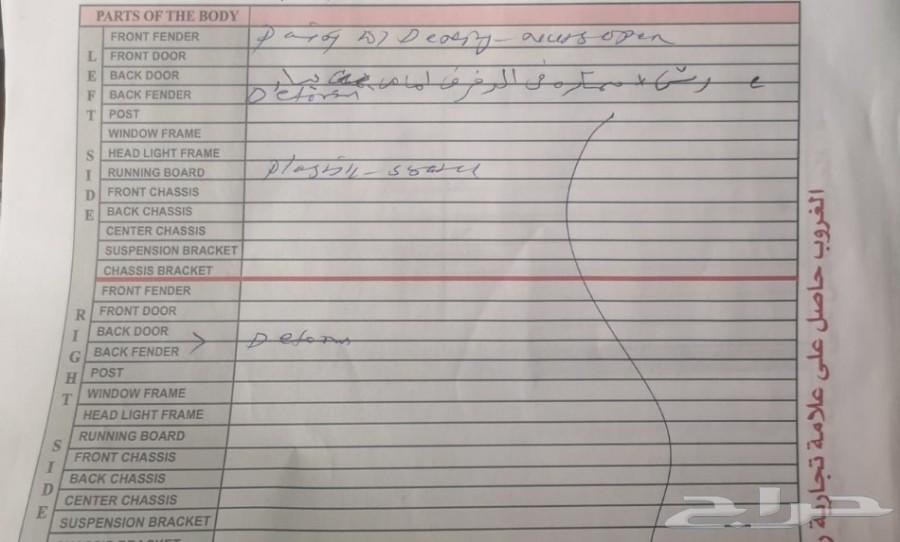 PARTS OF THE BODY
LEFT SIDE
FRONT FENDER
FRONT DOOR
BACK DOOR
BACK FENDER Deform
POST
WINDOW FRAME
HEAD LIGHT FRAME
RUNNING BOARD
FRONT CHASSIS
BACK CHASSIS
CENTER CHASSIS
SUSPENSION BRACKET
CHASSIS BRACKET
RIGHT SIDE
FRONT FENDER
FRONT DOOR
BACK DOOR
BACK FENDER > Deform
POST
WINDOW FRAME
HEAD LIGHT FRAME
RUNNING BOARD
FRONT CHASSIS
BACK CHASSIS
CENTER CHASSIS
SUSPENSION BRACKET
CHASSIS BRACKET
الغروب حاصل على علامة تجارية
حراج